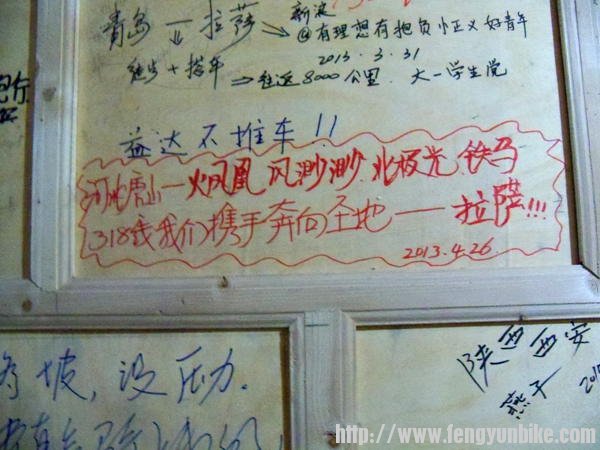 新浪
青岛 — 拉萨 → @有理想有抱负小正义好青年
2013.3.31
徒步+搭车 ⇒ 往返8000公里. 大一学生党
益达不推车!!
河北唐山—火凤凰 风渺渺 北极光 铁马
318线我们携手奔向圣地——拉萨!!!
2013.4.26
坡, 没压力.
陕西西安
燕子
http://www.fengyunbike.com